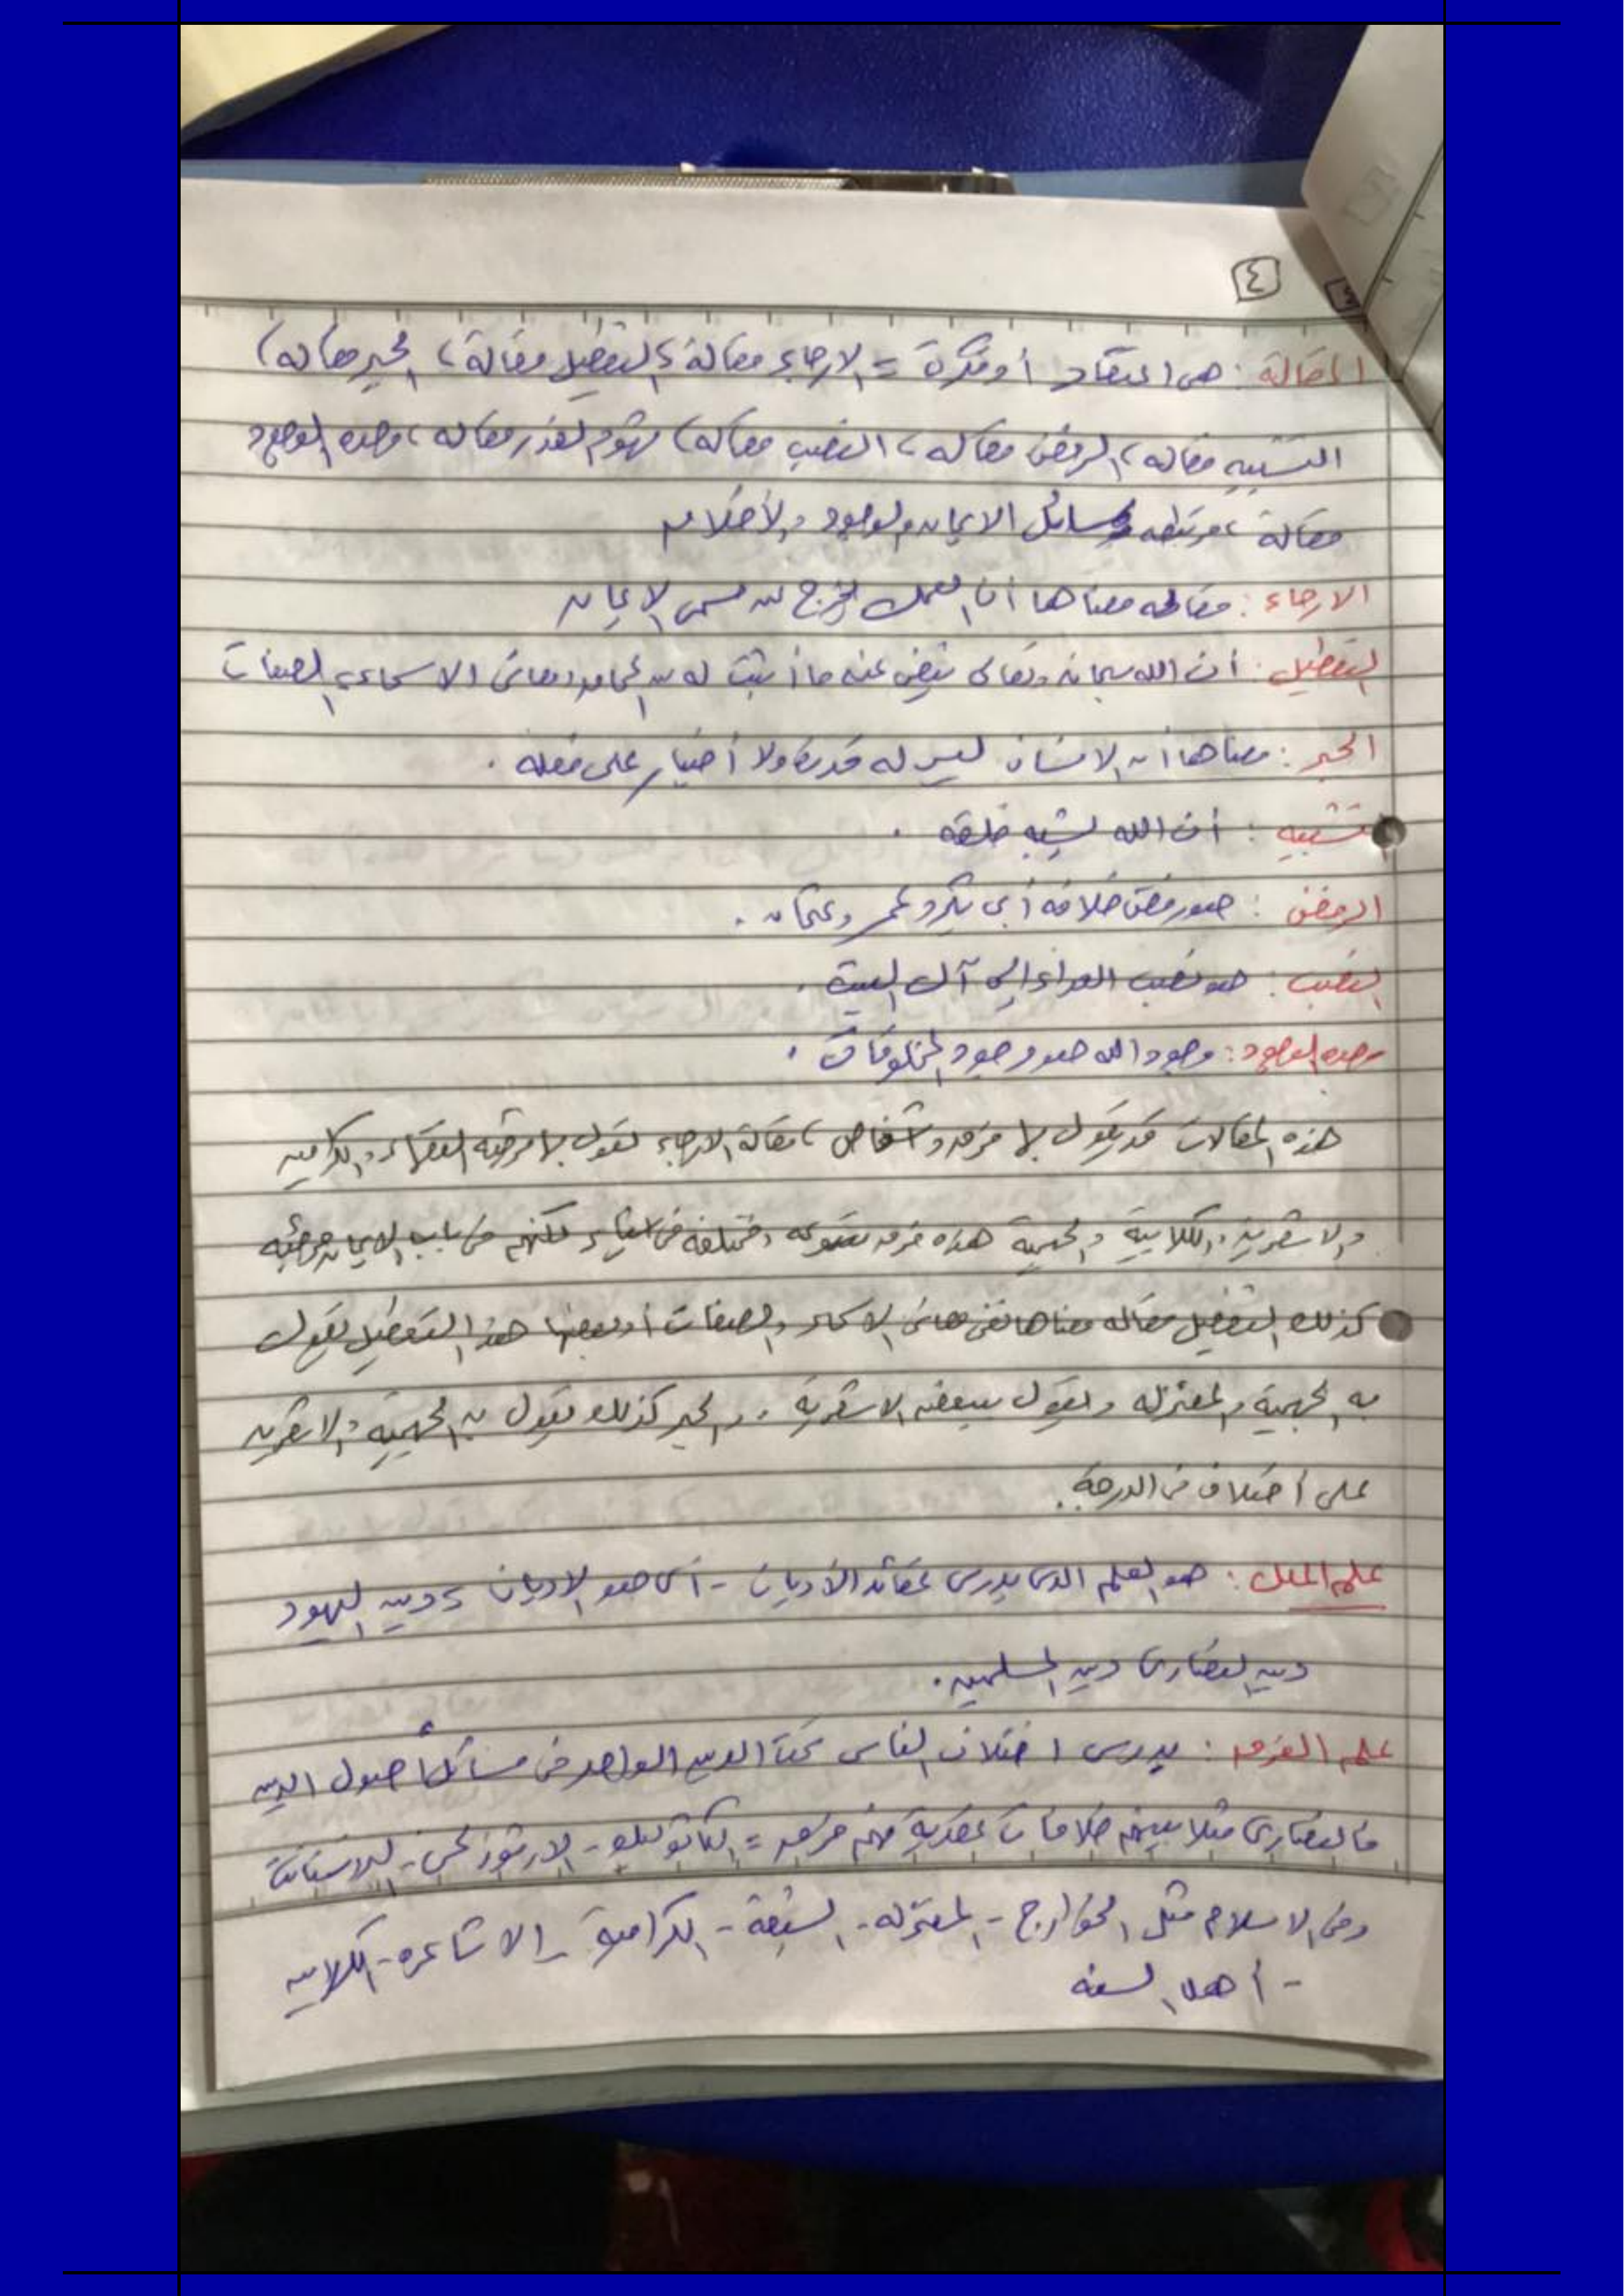 ٤
المقالة : هي اعتقاد أو فكرة = الارجاء مقالة ، التعطيل مقالة ، الجبر مقاله ،
التشبيه مقاله ، الرفض مقاله ، النصب مقاله ، مقاله ، وحده الوجود
مقالة ، مرتبطه بمسائل الايمان والوجود والأحكام
الارجاء : مقاله معناها أن العمل يخرج من مسمى الايمان
التعطيل : أن الله سبحانه وتعالى ينفى عنه ما أثبت له من المحامد ومعاني الاسماء والصفات
الجبر : معناها أن الانسان ليس له قدرة ولا أختيار على فعله .
تشبيه : أن الله يشبه خلقه .
الرفض : هو رفض خلافه أبي بكر وعمر وعثمان .
النصب : هو نصب العداء الي آل البيت .
وحده الوجود : وجود الله هو وجود المخلوقات .
هذه المقالات قد يقول بها فرق وأشخاص ، مقالة الارجاء تقول بها مرجئه الفقهاء والكراميه
والاشعرية والكلابية والجهمية هذه فرق متنوعه ومختلفه في اشياء لكنهم في باب الايمان مرجئه
كذلك التعطيل مقاله معناها نفي معاني الاسماء والصفات أو بعضها هذا التعطيل تقول
به الجهمية والمعتزله وتقول ببعضه الاشعرية . والجبر كذلك تقول به الجهمية والاشعريه
على أختلاف في الدرجة .
علم الملل : هو العلم الذي يدرس عقائد الأديان - أي هو الاديان كدين اليهود
دين النصارى دين المسلمين .
علم الفرق : يدرس اختلاف الناس تحت الدين الواحد في مسائل أصول الدين
فالنصارى مثلا بينهم خلافات عقدية فهم فرق = الكاثوليك - الارثوذكس - البروتستانت
وفي الاسلام مثل الخوارج - المعتزله - الشيعة - الكرامية - الاشاعره - الكلابيه
- أهل السنه